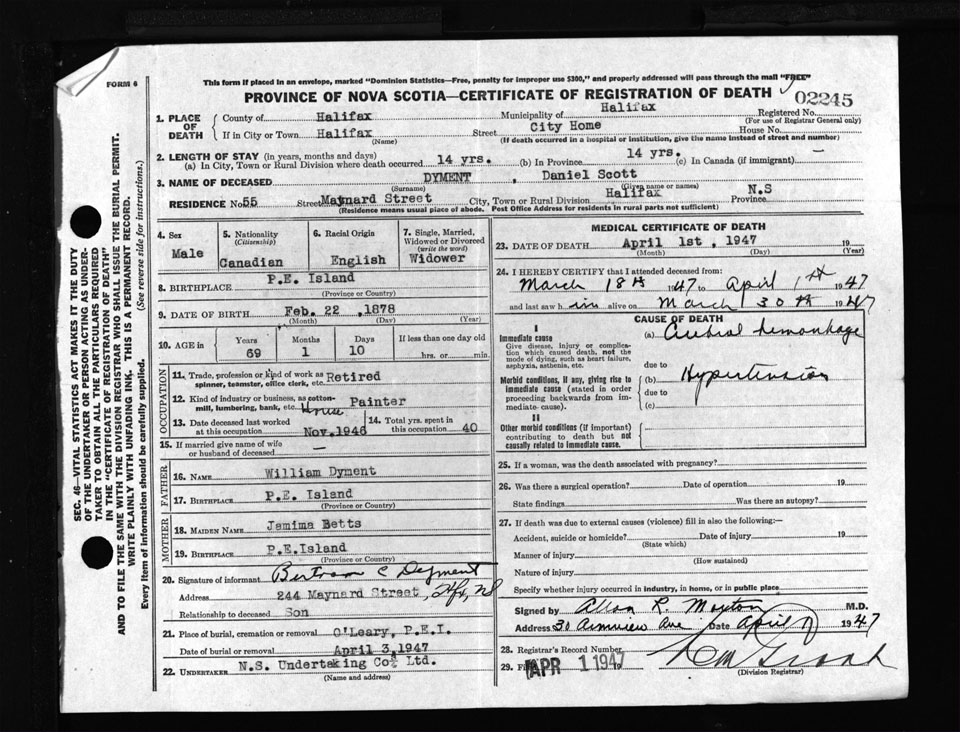 This form if placed in an envelope, marked "Dominion Statistics—Free, penalty for improper use $300," and properly addressed will pass through the mail "FREE"
FORM 6
PROVINCE OF NOVA SCOTIA—CERTIFICATE OF REGISTRATION OF DEATH
02245
SEC. 46—VITAL STATISTICS ACT MAKES IT THE DUTY
OF THE UNDERTAKER OR PERSON ACTING AS UNDER-
TAKER TO OBTAIN ALL THE PARTICULARS REQUIRED
IN THE "CERTIFICATE OF REGISTRATION OF DEATH"
AND TO FILE THE SAME WITH THE DIVISION REGISTRAR WHO SHALL ISSUE THE BURIAL PERMIT.
WRITE PLAINLY WITH UNFADING INK. THIS IS A PERMANENT RECORD.
Every item of information should be carefully supplied. (See reverse side for instructions.)
1. PLACE OF DEATH
County of Halifax Municipality of Halifax Registered No.
(For use of Registrar General only)
If in City or Town Halifax Street City Home House No.
(Name) (If death occurred in a hospital or institution, give the name instead of street and number)
2. LENGTH OF STAY (in years, months and days)
(a) In City, Town or Rural Division where death occurred 14 yrs. (b) In Province 14 yrs. (c) In Canada (if immigrant) —
3. NAME OF DECEASED DYMENT , Daniel Scott
(Surname) (Given name or names)
RESIDENCE No 55 Street Maynard Street City, Town or Rural Division Halifax Province N.S
(Residence means usual place of abode. Post Office Address for residents in rural parts not sufficient)
4. Sex
Male
5. Nationality
(Citizenship)
Canadian
6. Racial Origin
English
7. Single, Married,
Widowed or Divorced
(write the word)
Widower
8. BIRTHPLACE P.E. Island
(Province or Country)
9. DATE OF BIRTH Feb. 22 ,1878
(Month) (Day) (Year)
10. AGE in
Years Months Days If less than one day old
69 1 10 hrs. or min.
OCCUPATION
11. Trade, profession or kind of work as
spinner, teamster, office clerk, etc. Retired
12. Kind of industry or business, as cotton-
mill, lumbering, bank, etc. House Painter
13. Date deceased last worked
at this occupation Nov.1946
14. Total yrs. spent in
this occupation 40
15. If married give name of wife
or husband of deceased —
FATHER
16. NAME William Dyment
17. BIRTHPLACE P.E. Island
(Province or Country)
MOTHER
18. MAIDEN NAME Jemima Betts
19. BIRTHPLACE P.E.Island
(Province or Country)
20. Signature of informant Bertram C Dyment
Address 244 Maynard Street, Hfx, NS
Relationship to deceased Son
21. Place of burial, cremation or removal O'Leary, P.E.I.
Date of burial or removal April 3,1947
22. UNDERTAKER N.S. Undertaking Co. Ltd.
(Name and address)
MEDICAL CERTIFICATE OF DEATH
23. DATE OF DEATH April 1st , 1947 19
(Month) (Day) (Year)
24. I HEREBY CERTIFY that I attended deceased from:
March 18th 1947 to April 1st 1947
and last saw him alive on March 30th 1947
CAUSE OF DEATH
I
Immediate cause
Give disease, injury or complica-
tion which caused death, not the
mode of dying, such as heart failure,
asphyxia, asthenia, etc.
(a) Cerebral hemorrhage
due to
Morbid conditions, if any, giving rise to
immediate cause (stated in order
proceeding backwards from im-
mediate cause).
(b) Hypertension
due to
(c)
II
Other morbid conditions (if important)
contributing to death but not
causally related to immediate cause.
25. If a woman, was the death associated with pregnancy?
26. Was there a surgical operation? Date of operation 19
State findings Was there an autopsy?
27. If death was due to external causes (violence) fill in also the following:—
Accident, suicide or homicide? Date of injury 19
(State which)
Manner of injury
(How sustained)
Nature of injury
Specify whether injury occurred in industry, in home, or in public place
Signed by Allan R. Morton M.D.
Address 30 Armview Ave Date April 1947
28. Registrar's Record Number
29. APR 1 1947
(Division Registrar)